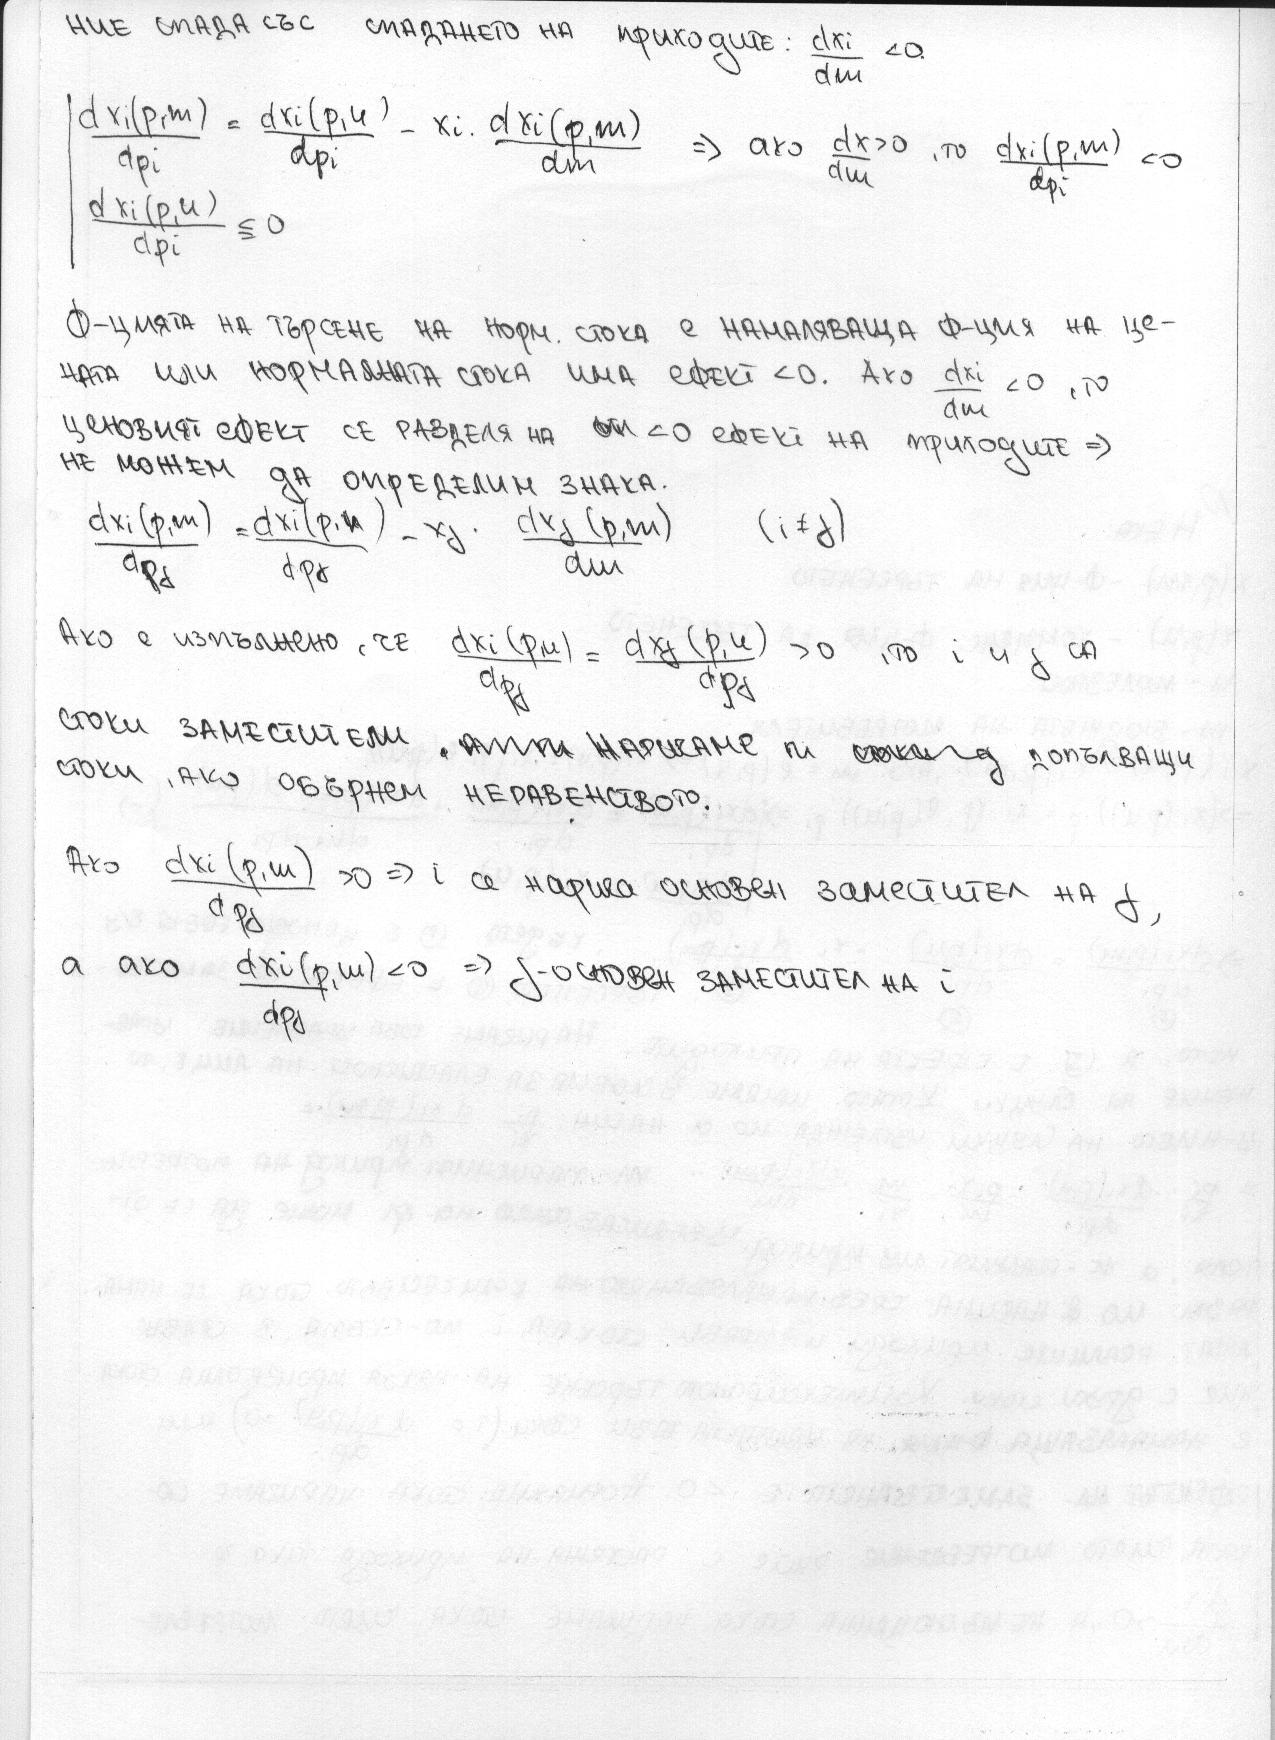 ние спада със спадането на приходите: dxi/dm <0.
dxi(p,m)/dpi = dxi(p,u)/dpi - xi. dxi(p,m)/dm => ако dx/dm >0, то dxi(p,m)/dpi <0
dxi(p,u)/dpi ≤ 0
Ф-цията на търсене на норм. стока е намаляваща ф-ция на це-
ната или нормалната стока има ефект <0. Ако dxi/dm <0, то
ценовият ефект се разделя на <0 ефект на приходите =>
не можем да определим знака.
dxi(p,m)/dpj = dxi(p,u)/dpj - xj. dxj(p,m)/dm (i ≠ j)
Ако е изпълнено, че dxi(p,u)/dpj = dxj(p,u)/dpj >0, то i и j са
стоки заместители. Наричаме ги допълващи
стоки, ако обърнем неравенството.
Ако dxi(p,m)/dpj >0 => i се нарича основен заместител на j,
а ако dxi(p,m)/dpj <0 => j-основен заместител на i